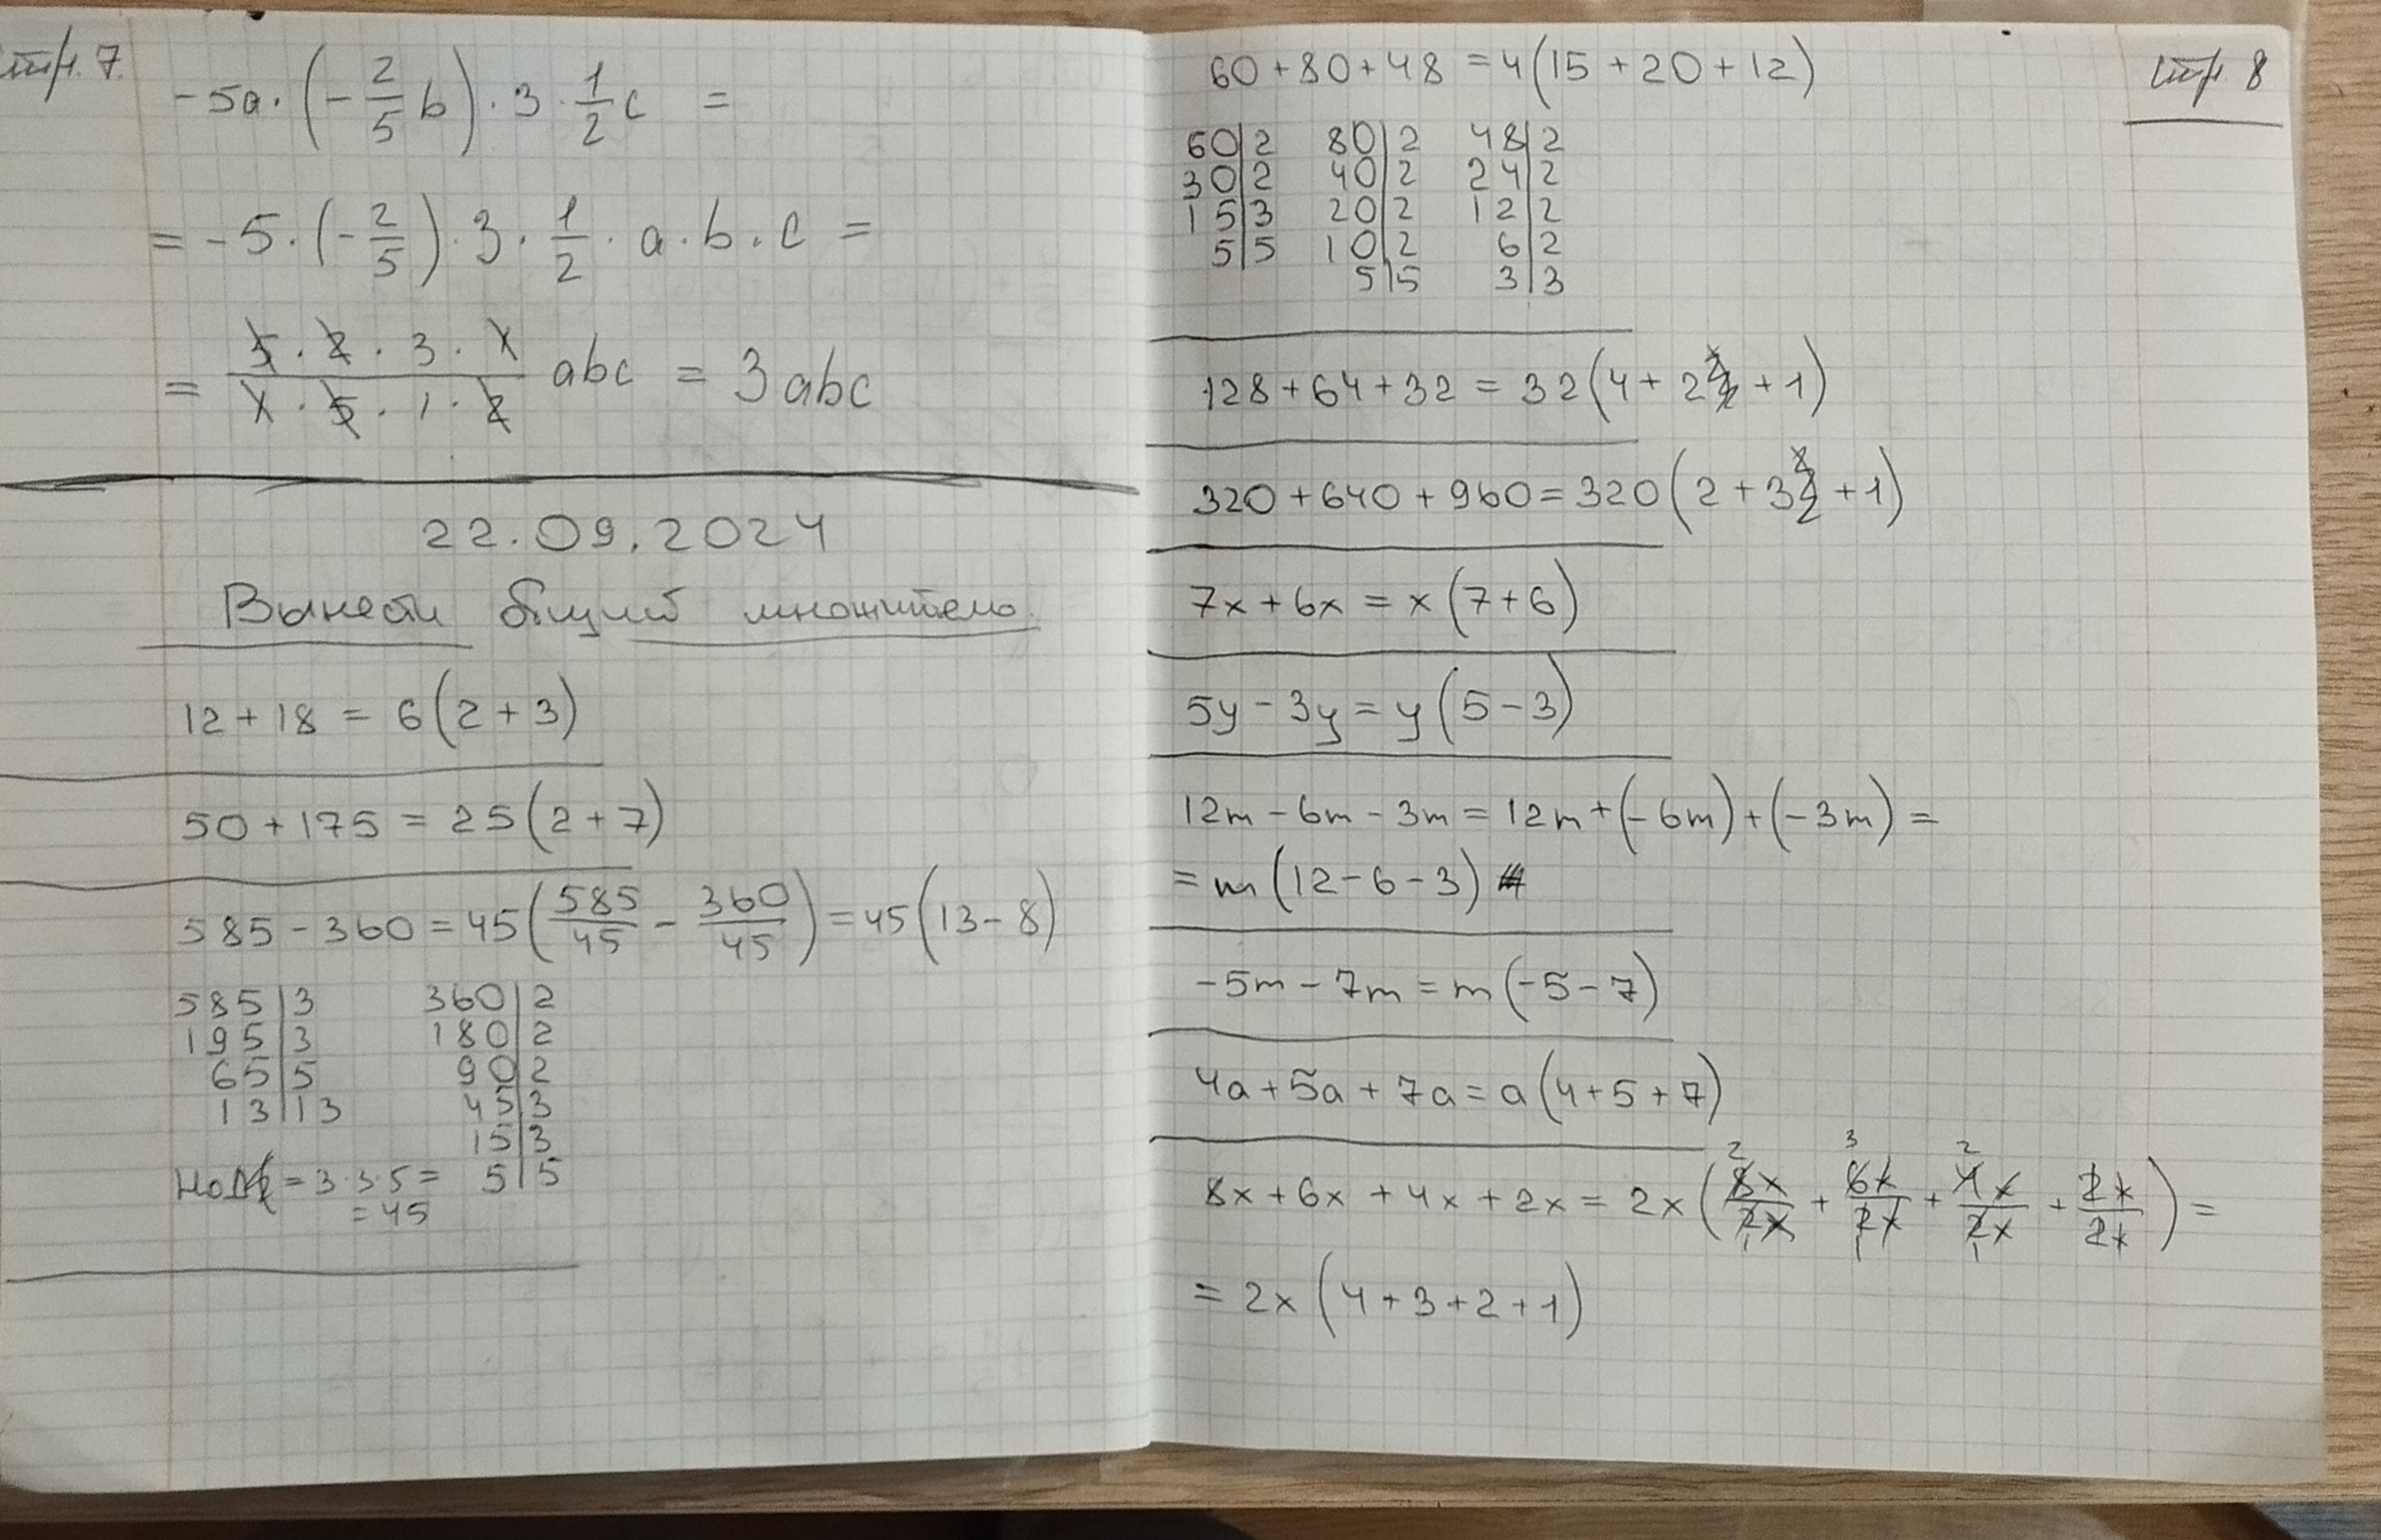 стр. 7.
-5a · (-2/5 b) · 3 · 1/2 c =
= -5 · (-2/5) · 3 · 1/2 · a · b · c =
= (5 · 2 · 3 · 1)/(1 · 5 · 1 · 2) abc = 3abc
22.09.2024
Вынести общий множитель.
12 + 18 = 6(2 + 3)
50 + 175 = 25(2 + 7)
585 - 360 = 45(585/45 - 360/45) = 45(13 - 8)
585|3 360|2
195|3 180|2
65|5 90|2
13|13 45|3
15|3
НОД = 3·3·5 = 5|5
= 45
стр. 8
60 + 80 + 48 = 4(15 + 20 + 12)
60|2 80|2 48|2
30|2 40|2 24|2
15|3 20|2 12|2
5|5 10|2 6|2
5|5 3|3
128 + 64 + 32 = 32(4 + 2 + 1)
320 + 640 + 960 = 320(2 + 3 + 1)
7x + 6x = x(7 + 6)
5y - 3y = y(5 - 3)
12m - 6m - 3m = 12m + (-6m) + (-3m) =
= m(12 - 6 - 3)
-5m - 7m = m(-5 - 7)
4a + 5a + 7a = a(4 + 5 + 7)
8x + 6x + 4x + 2x = 2x(8x/2x + 6x/2x + 4x/2x + 2x/2x) =
= 2x(4 + 3 + 2 + 1)